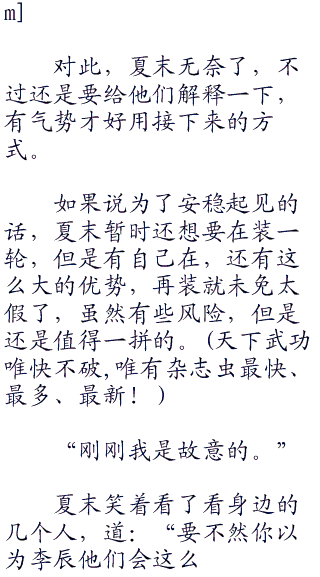 m]
对此，夏末无奈了，不
过还是要给他们解释一下，
有气势才好用接下来的方
式。
如果说为了安稳起见的
话，夏末暂时还想要在装一
轮，但是有自己在，还有这
么大的优势，再装就未免太
假了，虽然有些风险，但是
还是值得一拼的。(天下武功
唯快不破,唯有杂志虫最快、
最多、最新！)
“刚刚我是故意的。”
夏末笑着看了看身边的
几个人，道：“要不然你以
为李辰他们会这么